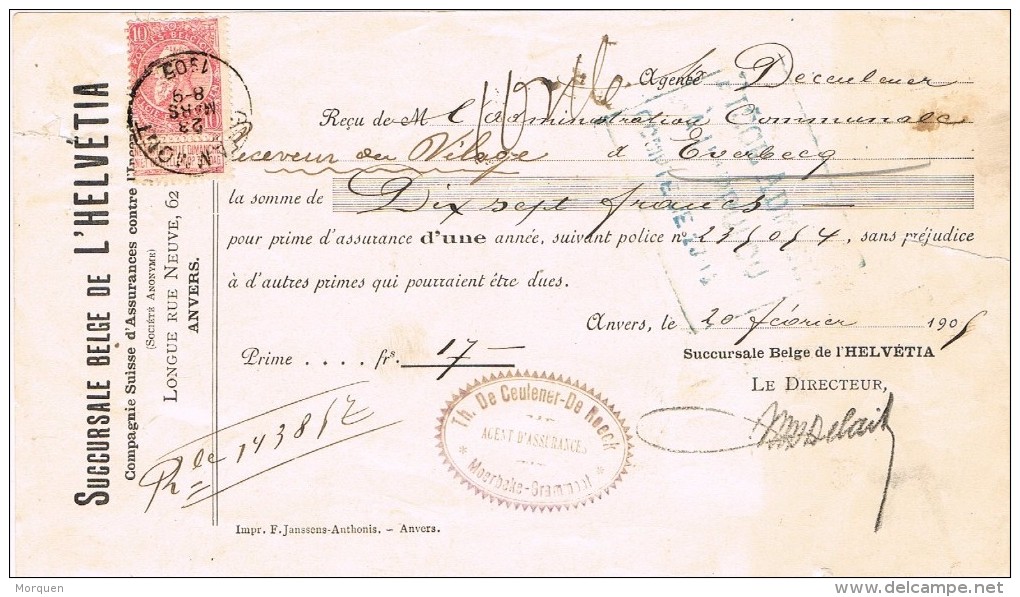 SUCCURSALE BELGE DE L'HELVÉTIA
Compagnie Suisse d'Assurances contre l'Incendie
(SOCIÉTÉ ANONYME)
LONGUE RUE NEUVE, 62
ANVERS.
10
10
23
MARS
8-9
1905
Agence Deceulener
Reçu de M l'administration Communale
receveur du Village d'Everbecq
la somme de Dix sept francs
pour prime d'assurance d'une année, suivant police nº 235054, sans préjudice
à d'autres primes qui pourraient être dues.
Anvers, le 20 février 1905
Prime .... frs. 17 —
Succursale Belge de l'HELVÉTIA
LE DIRECTEUR,
Th. De Ceulener-De Noeck
AGENT D'ASSURANCES
Moerbeke-Grammont
143852
Impr. F. Janssens-Anthonis. – Anvers.
Morquen
delcampe.net